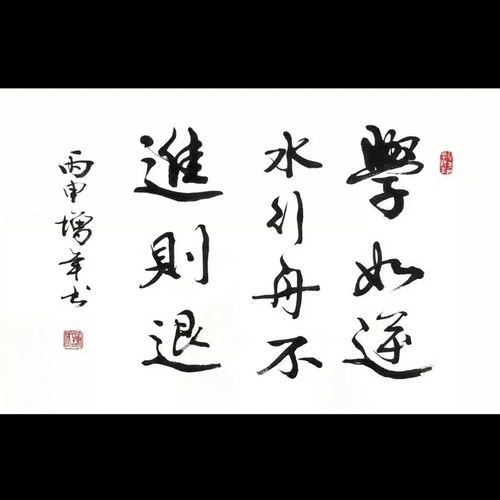 學如逆
水行舟不
進則退
丙申增年书